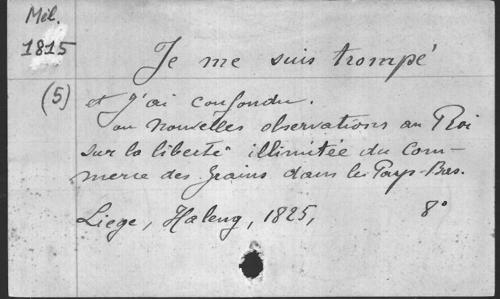 Mél.
1815
(5)
Je me suis trompé
et j'ai confondu.
ou nouvelles observations au Roi
sur la liberté illimitée du Com-
merce des grains dans les Pays-Bas.
Liege, Haleng, 1825, 8°